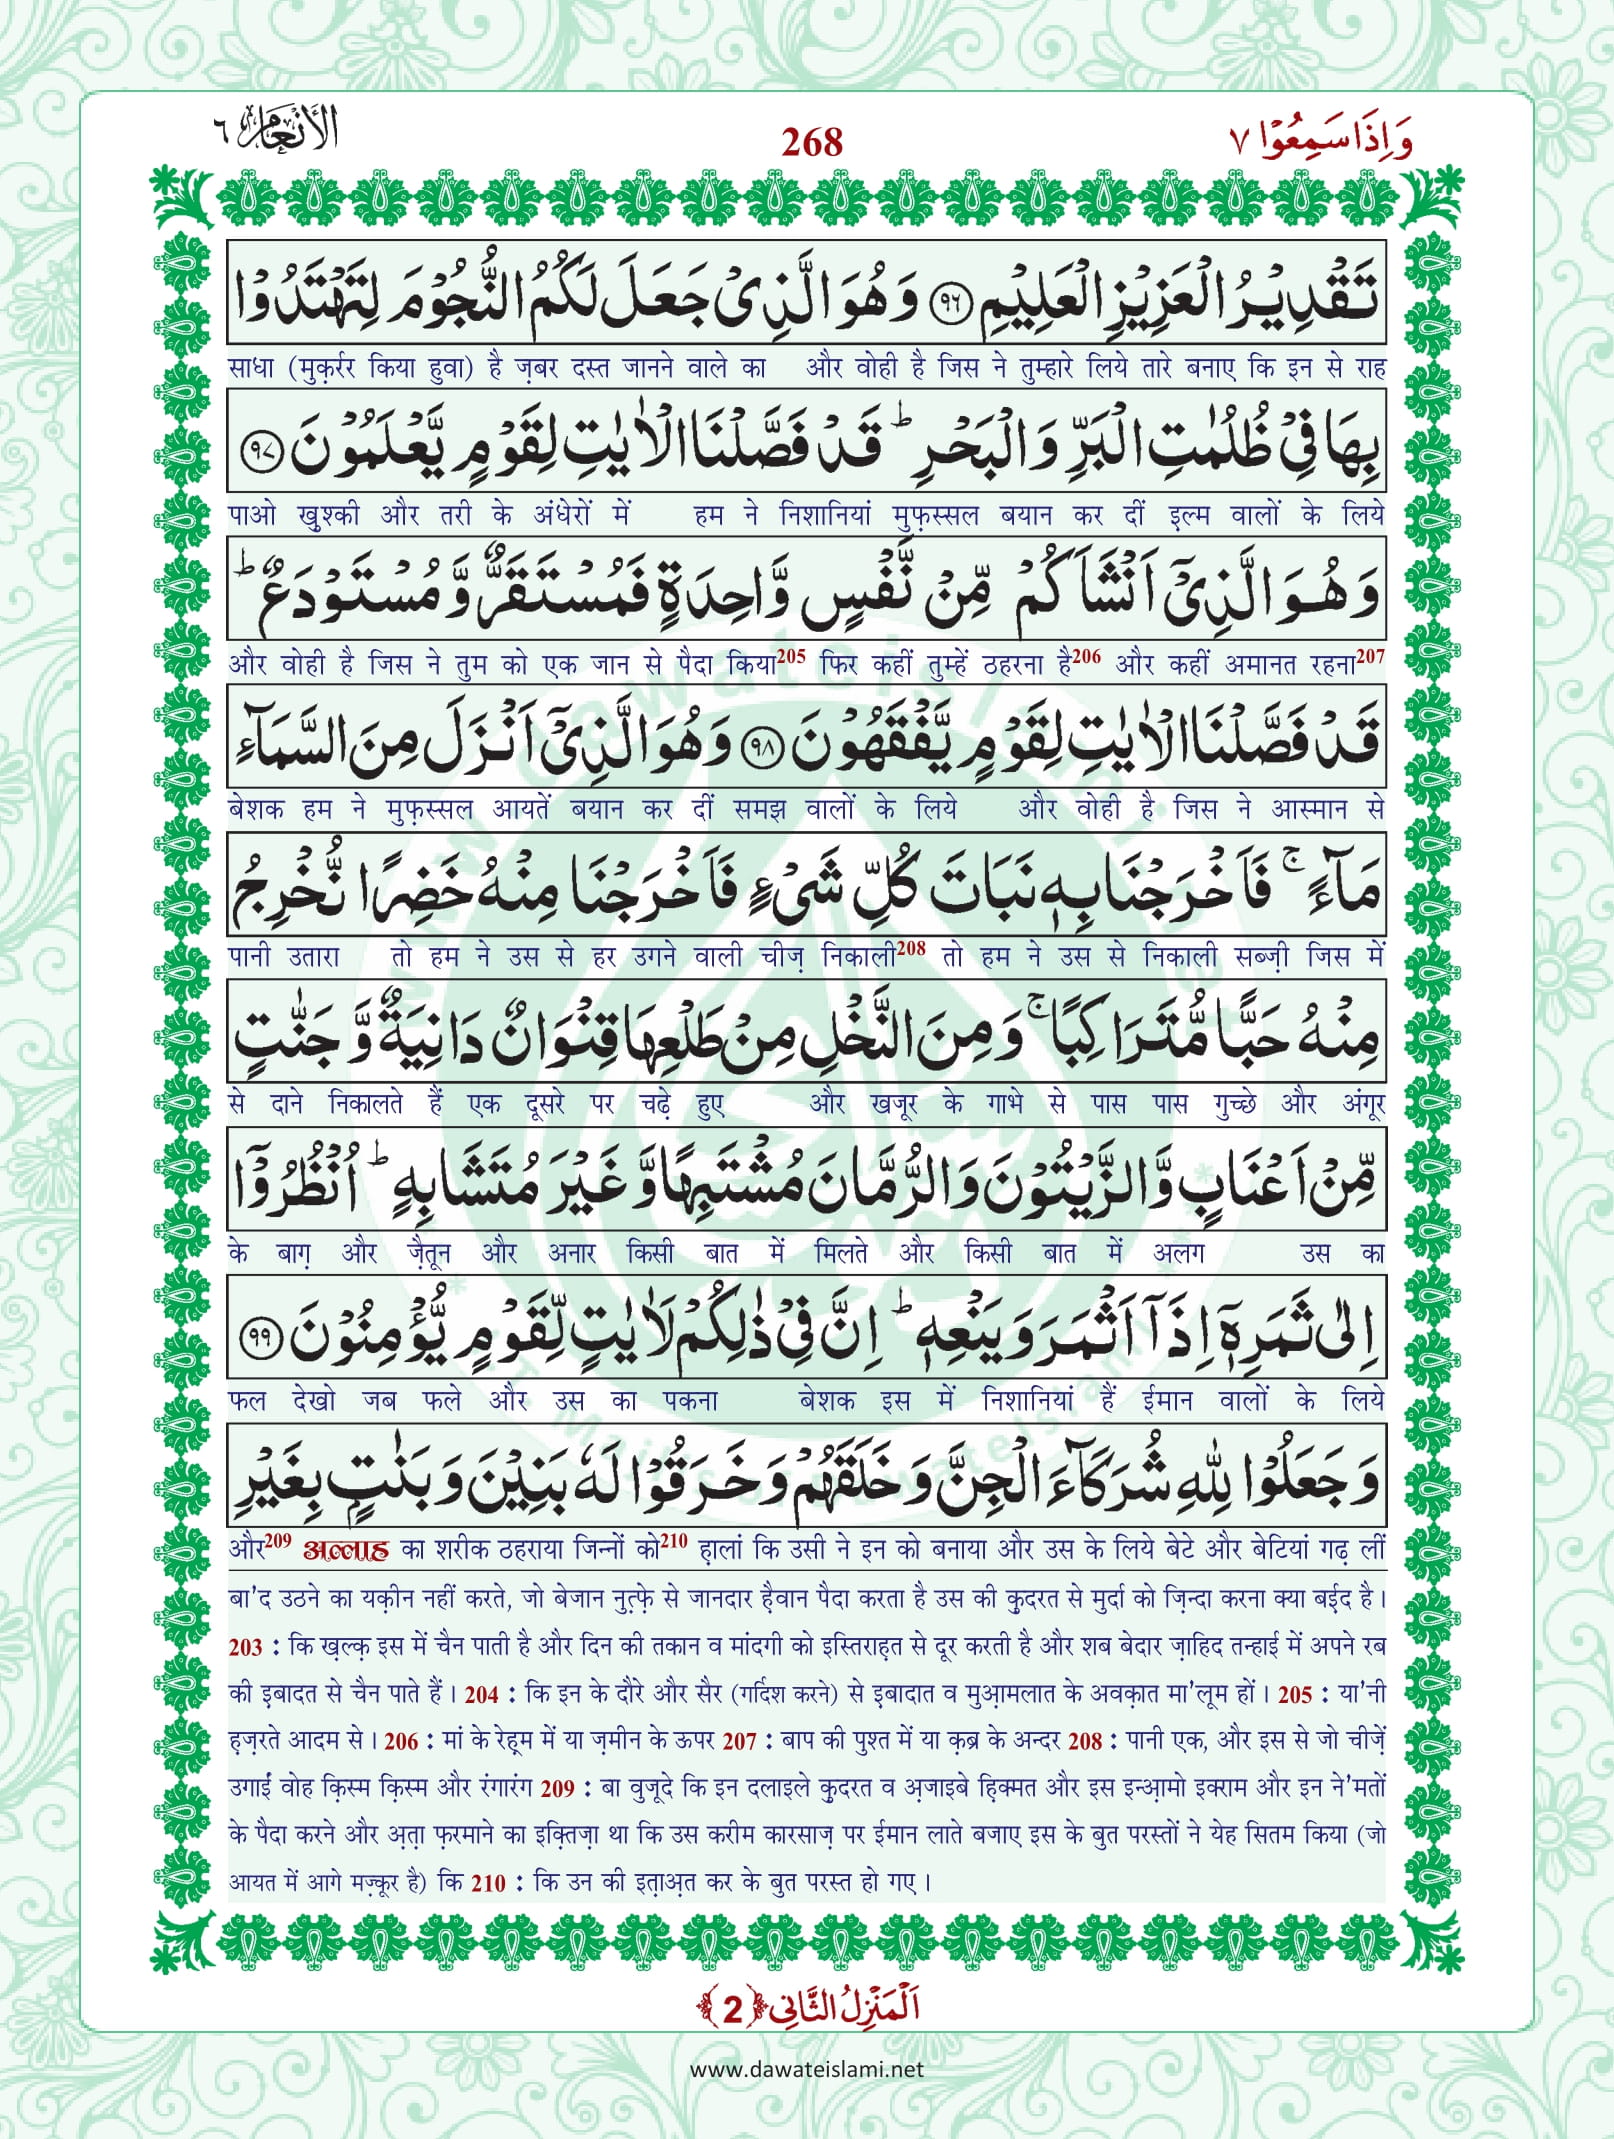 وَاِذَا سَمِعُوْا ٧
268
الْاَنْعَام ٦
تَقْدِیْرُ الْعَزِیْزِ الْعَلِیْمِ ﴿۹۶﴾ وَ هُوَ الَّذِیْ جَعَلَ لَكُمُ النُّجُوْمَ لِتَهْتَدُوْا
साधा (मुक़र्रर किया हुवा) है ज़बर दस्त जानने वाले का और वोही है जिस ने तुम्हारे लिये तारे बनाए कि इन से राह
بِهَا فِیْ ظُلُمٰتِ الْبَرِّ وَ الْبَحْرِ ؕ قَدْ فَصَّلْنَا الْاٰیٰتِ لِقَوْمٍ یَّعْلَمُوْنَ ﴿۹۷﴾
पाओ खुश्की और तरी के अंधेरों में हम ने निशानियां मुफ़स्सल बयान कर दीं इल्म वालों के लिये
وَ هُوَ الَّذِیْۤ اَنْشَاَكُمْ مِّنْ نَّفْسٍ وَّاحِدَةٍ فَمُسْتَقَرٌّ وَّ مُسْتَوْدَعٌ ؕ
और वोही है जिस ने तुम को एक जान से पैदा किया205 फिर कहीं तुम्हें ठहरना है206 और कहीं अमानत रहना207
قَدْ فَصَّلْنَا الْاٰیٰتِ لِقَوْمٍ یَّفْقَهُوْنَ ﴿۹۸﴾ وَ هُوَ الَّذِیْۤ اَنْزَلَ مِنَ السَّمَآءِ
बेशक हम ने मुफ़स्सल आयतें बयान कर दीं समझ वालों के लिये और वोही है जिस ने आस्मान से
مَآءً ۚ فَاَخْرَجْنَا بِهٖ نَبَاتَ كُلِّ شَیْءٍ فَاَخْرَجْنَا مِنْهُ خَضِرًا نُّخْرِجُ
पानी उतारा तो हम ने उस से हर उगने वाली चीज़ निकाली208 तो हम ने उस से निकाली सब्ज़ी जिस में
مِنْهُ حَبًّا مُّتَرَاكِبًا ۚ وَ مِنَ النَّخْلِ مِنْ طَلْعِهَا قِنْوَانٌ دَانِیَةٌ وَّ جَنّٰتٍ
से दाने निकालते हैं एक दूसरे पर चढ़े हुए और खजूर के गाभे से पास पास गुच्छे और अंगूर
مِّنْ اَعْنَابٍ وَّ الزَّیْتُوْنَ وَ الرُّمَّانَ مُشْتَبِهًا وَّ غَیْرَ مُتَشَابِهٍ ؕ اُنْظُرُوْۤا
के बाग़ और ज़ैतून और अनार किसी बात में मिलते और किसी बात में अलग उस का
اِلٰى ثَمَرِهٖۤ اِذَاۤ اَثْمَرَ وَ یَنْعِهٖ ؕ اِنَّ فِیْ ذٰلِكُمْ لَاٰیٰتٍ لِّقَوْمٍ یُّؤْمِنُوْنَ ﴿۹۹﴾
फल देखो जब फले और उस का पकना बेशक इस में निशानियां हैं ईमान वालों के लिये
وَ جَعَلُوْا لِلّٰهِ شُرَكَآءَ الْجِنَّ وَ خَلَقَهُمْ وَ خَرَقُوْا لَهٗ بَنِیْنَ وَ بَنٰتٍۭ بِغَیْرِ
और209 अल्लाह का शरीक ठहराया जिन्नों को210 ह़ालां कि उसी ने इन को बनाया और उस के लिये बेटे और बेटियां गढ़ लीं
बा'द उठने का यक़ीन नहीं करते, जो बेजान नुत़्फ़े से जानदार ह़ैवान पैदा करता है उस की कु़दरत से मुर्दा को ज़िन्दा करना क्या बईद है।
203 : कि ख़ल्क़ इस में चैन पाती है और दिन की तकान व मांदगी को इस्तिराह़त से दूर करती है और शब बेदार ज़ाहिद तन्हाई में अपने रब
की इ़बादत से चैन पाते हैं। 204 : कि इन के दौरे और सैर (गर्दिश करने) से इ़बादात व मुआ़मलात के अवक़ात मा'लूम हों। 205 : या'नी
ह़ज़रते आदम से। 206 : मां के रेह़्म में या ज़मीन के ऊपर 207 : बाप की पुश्त में या क़ब्र के अन्दर 208 : पानी एक, और इस से जो चीज़ें
उगाईं वोह क़िस्म क़िस्म और रंगारंग 209 : बा वुजूदे कि इन दलाइले कु़दरत व अ़जाइबे ह़िक्मत और इस इन्आ़मो इक्राम और इन ने'मतों
के पैदा करने और अ़त़ा फ़रमाने का इक़्तिज़ा था कि उस करीम कारसाज़ पर ईमान लाते बजाए इस के बुत परस्तों ने येह सितम किया (जो
आयत में आगे मज़्कूर है) कि 210 : कि उन की इत़ाअ़त कर के बुत परस्त हो गए।
اَلْمَنْزِلُ الثَّانِی ﴿2﴾
www.dawateislami.net